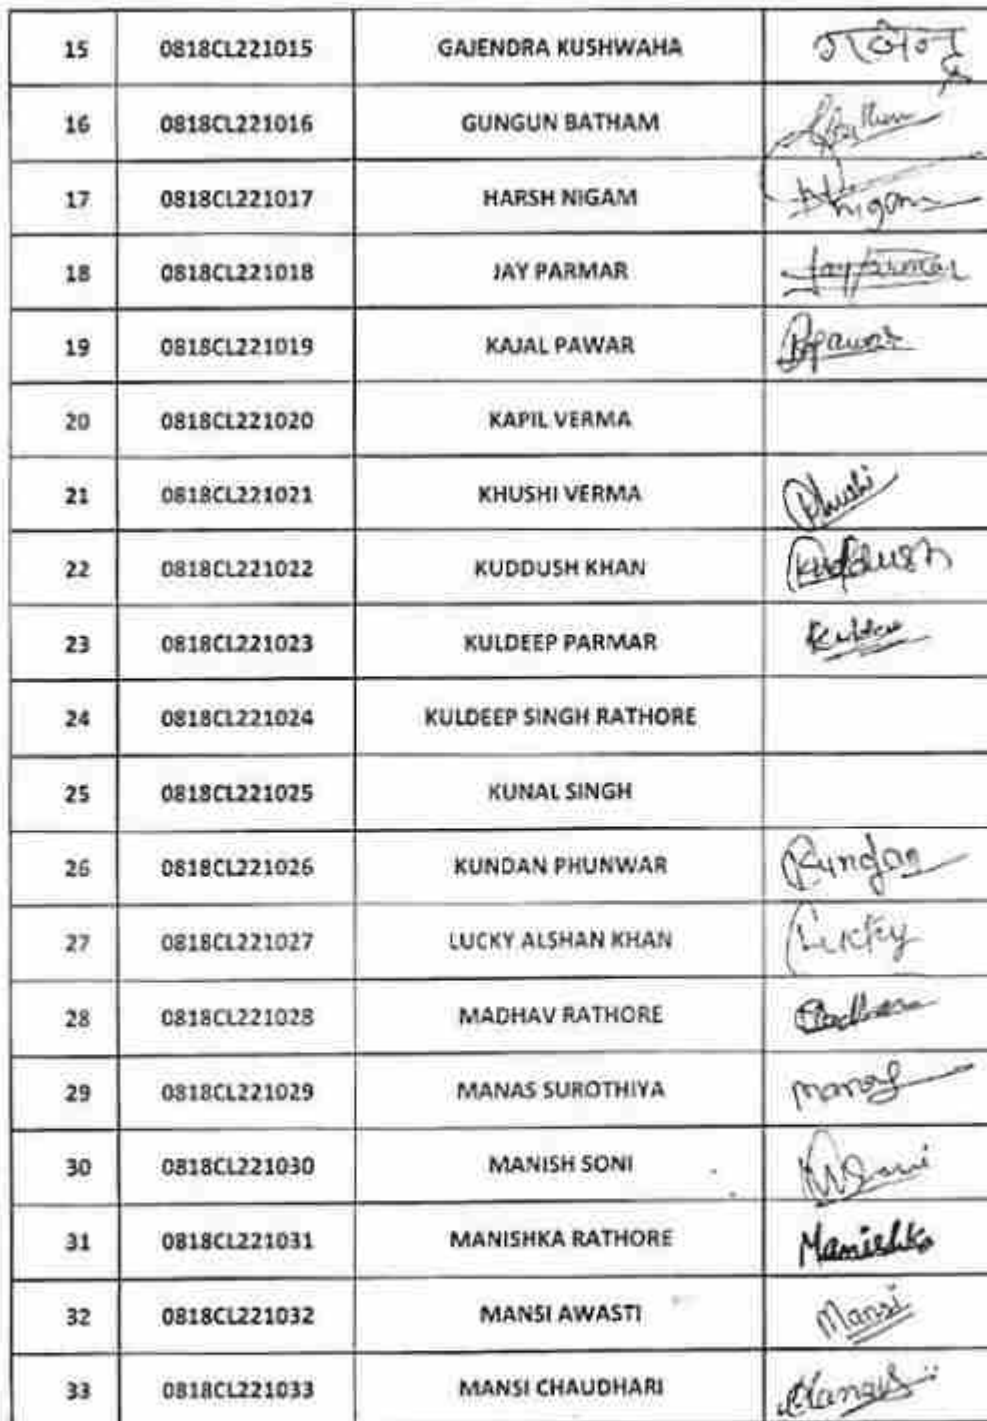 15 0818CL221015 GAJENDRA KUSHWAHA गजेन्द्र
16 0818CL221016 GUNGUN BATHAM
17 0818CL221017 HARSH NIGAM Nigam
18 0818CL221018 JAY PARMAR Jay Parmar
19 0818CL221019 KAJAL PAWAR Pawar
20 0818CL221020 KAPIL VERMA
21 0818CL221021 KHUSHI VERMA Khushi
22 0818CL221022 KUDDUSH KHAN Kuddush
23 0818CL221023 KULDEEP PARMAR
24 0818CL221024 KULDEEP SINGH RATHORE
25 0818CL221025 KUNAL SINGH
26 0818CL221026 KUNDAN PHUNWAR Kundan
27 0818CL221027 LUCKY ALSHAN KHAN Lucky
28 0818CL221028 MADHAV RATHORE
29 0818CL221029 MANAS SUROTHIYA Manas
30 0818CL221030 MANISH SONI
31 0818CL221031 MANISHKA RATHORE Manishka
32 0818CL221032 MANSI AWASTI Mansi
33 0818CL221033 MANSI CHAUDHARI